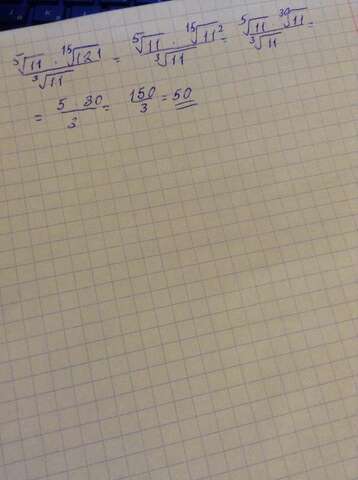 ⁵√11 · ¹⁵√121 / ³√11 = ⁵√11 · ¹⁵√11² / ³√11 = ⁵√11 ³⁰√11 / ³√11 =
= 5 30 / 3 = 150 / 3 = 50